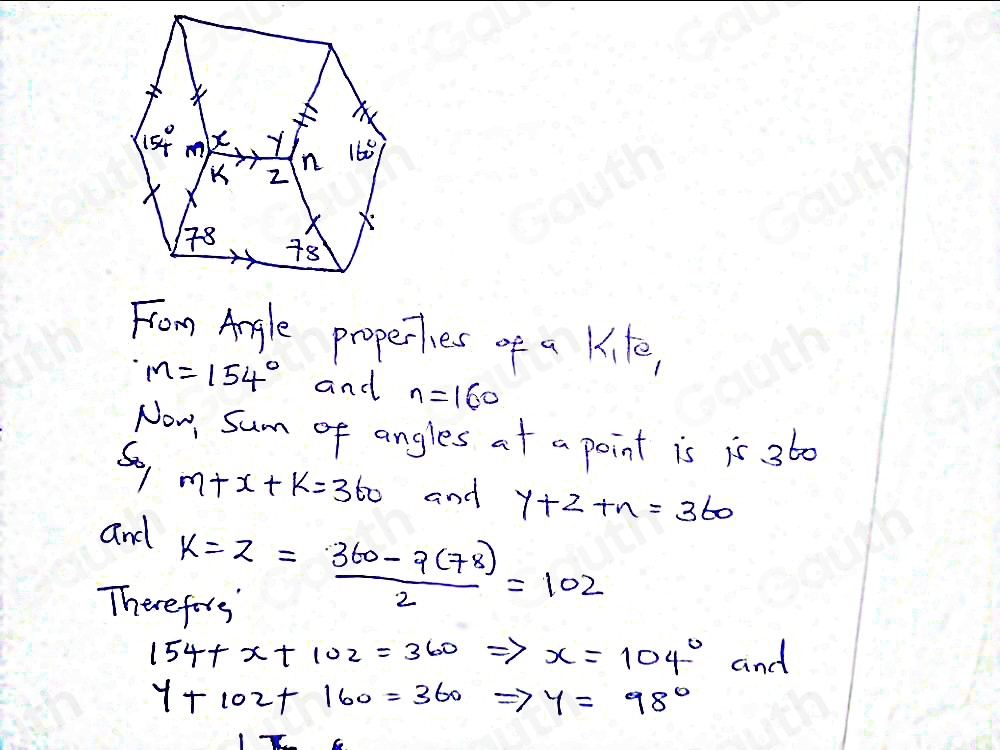 154° m x y n 160°
K z
78 78
From Angle properties of a Kite,
m = 154° and n = 160
Now, Sum of angles at a point is is 360
So, m + x + K = 360 and y + z + n = 360
and K = z = \frac{360 - 2(78)}{2} = 102
Therefore,
154 + x + 102 = 360 => x = 104° and
y + 102 + 160 = 360 => y = 98°